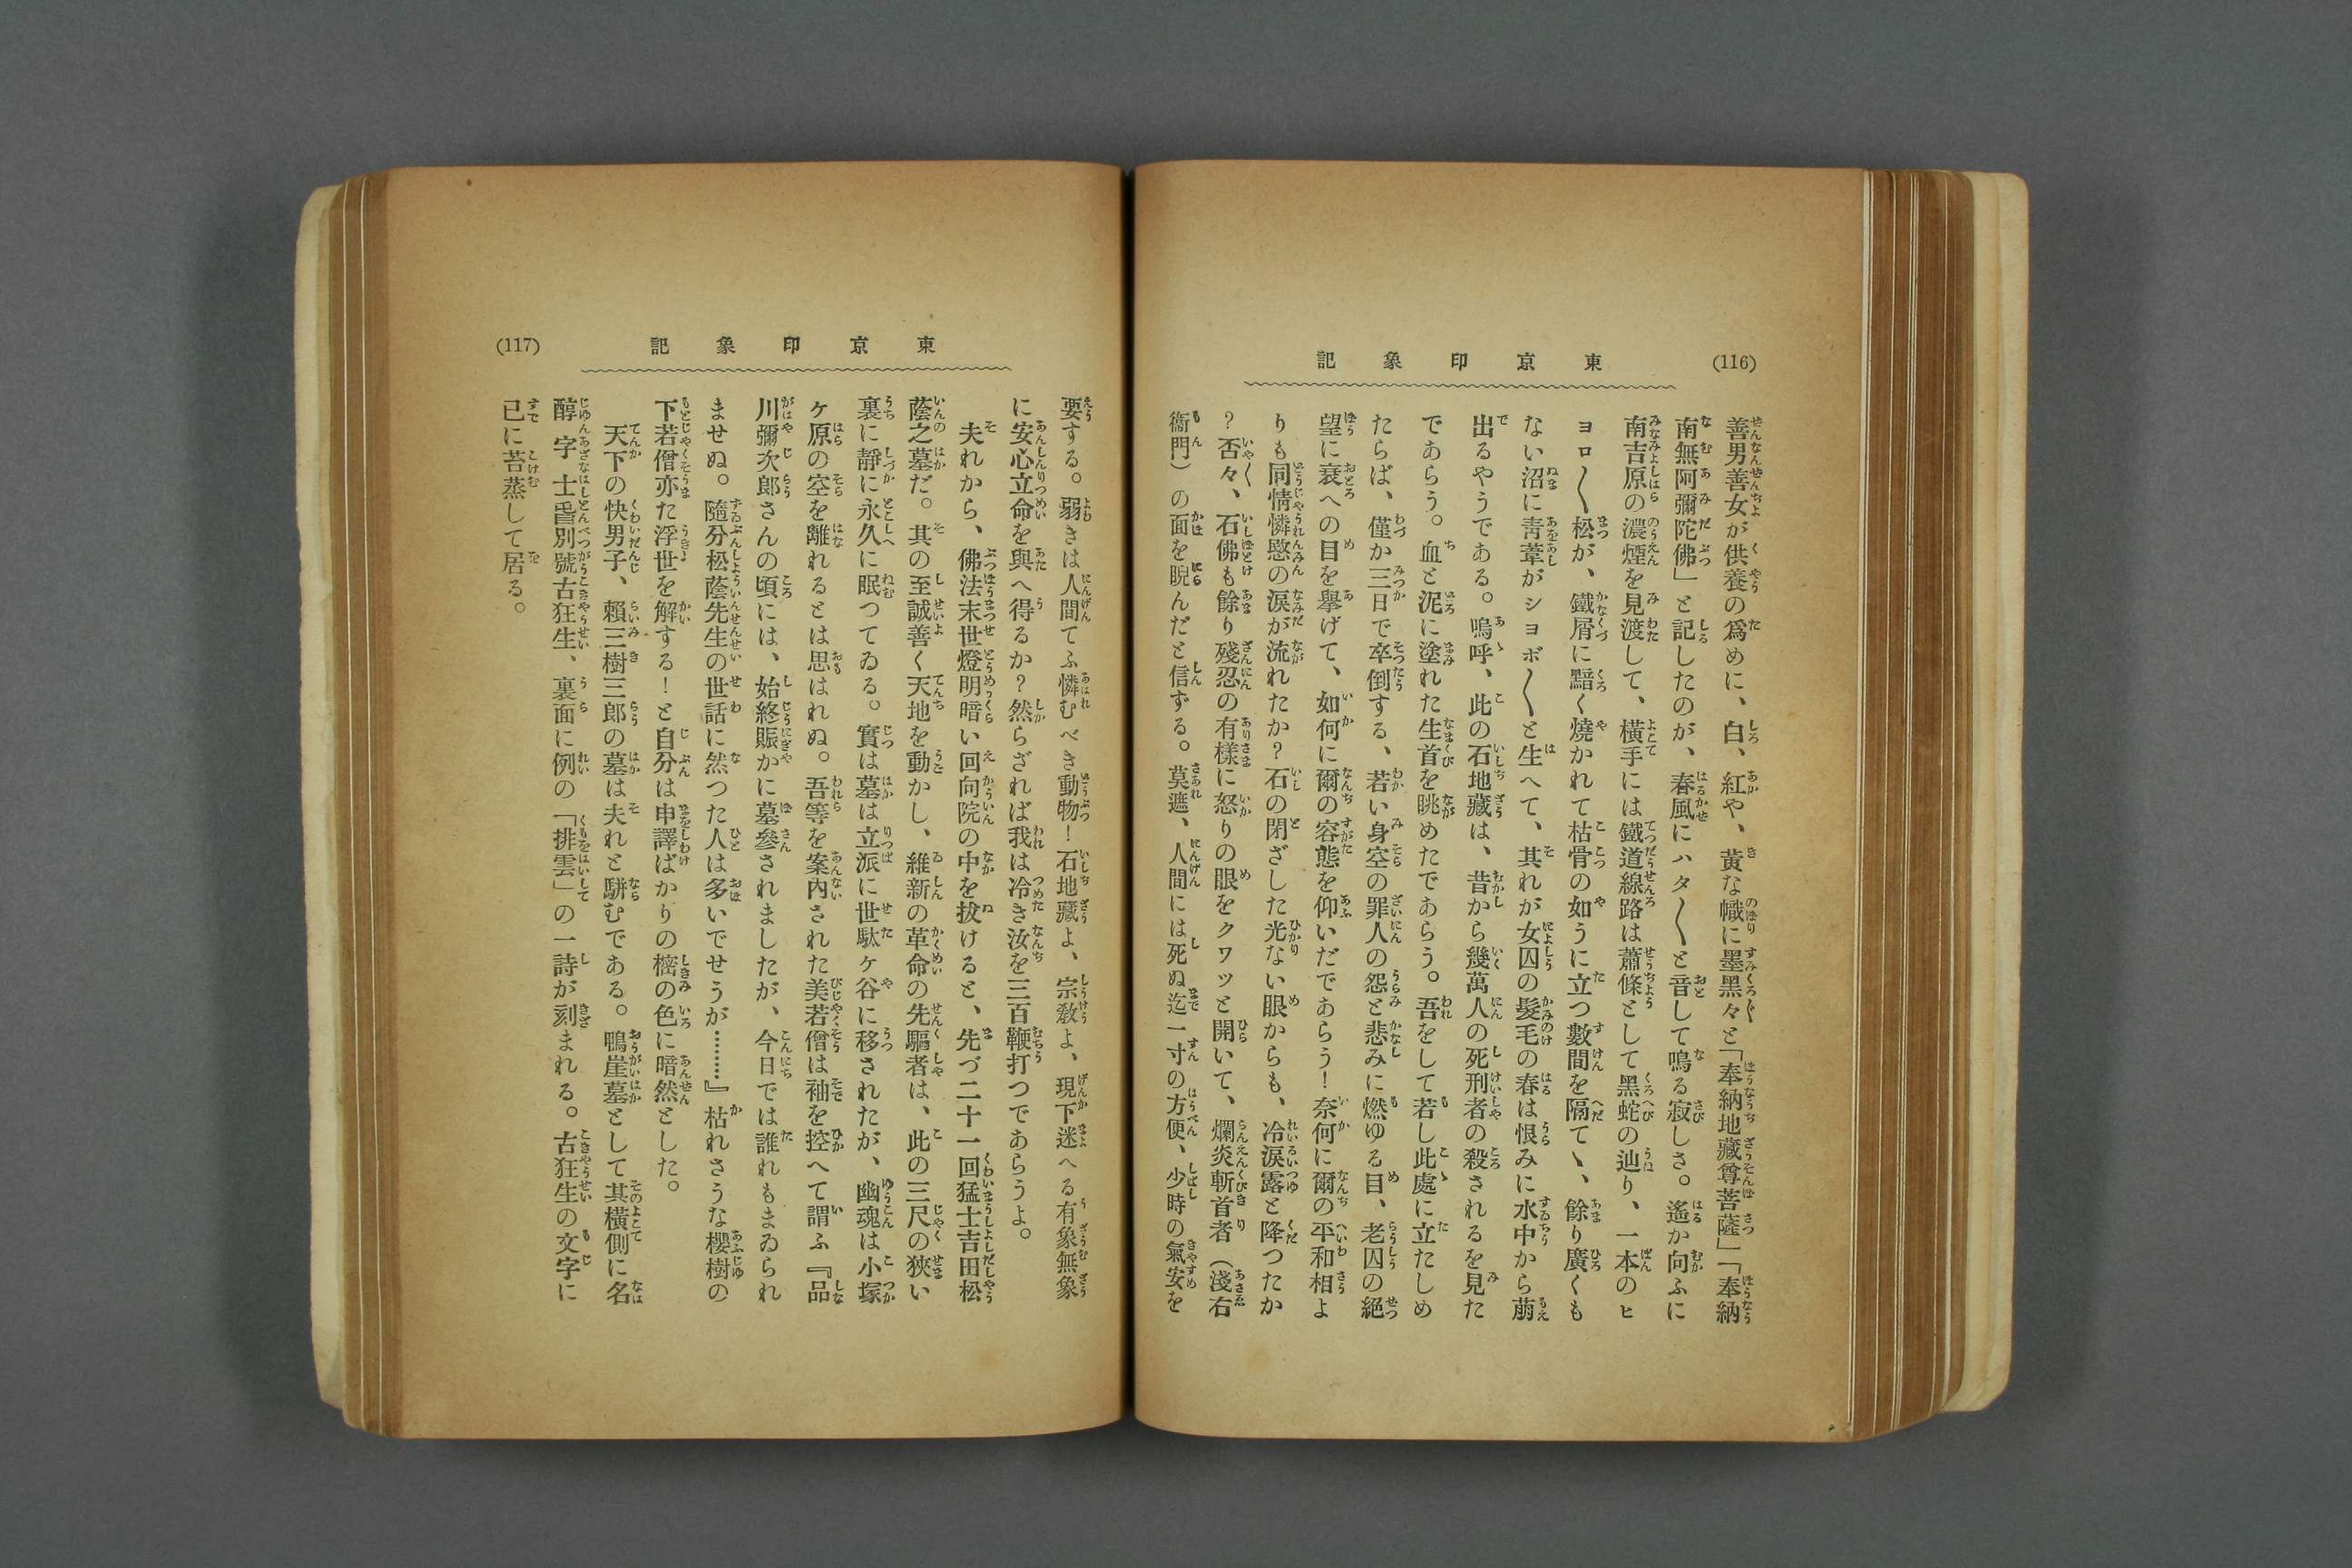 (116)
東京印象記
善男善女が供養の爲めに、白、紅や、黄な幟に墨黑々と「奉納地藏尊菩薩」「奉納
南無阿彌陀佛」と記したのが、春風にハタ〳〵と音して鳴る寂しさ。遙か向ふに
南吉原の濃煙を見渡して、橫手には鐵道線路は蕭條として黑蛇の辿り、一本のヒ
ヨロ〳〵松が、鐵屑に黯く燒かれて枯骨の如うに立つ數間を隔てヽ、餘り廣くも
ない沼に靑葦がショボ〳〵と生へて、其れが女囚の髮毛の春は恨みに水中から萠
出るやうである。嗚呼、此の石地藏は、昔から幾萬人の死刑者の殺されるを見た
であらう。血と泥に塗れた生首を眺めたであらう。吾をして若し此處に立たしめ
たらば、僅か三日で卒倒する、若い身空の罪人の怨と悲みに燃ゆる目、老囚の絕
望に衰への目を擧げて、如何に爾の容態を仰いだであらう！奈何に爾の平和相よ
りも同情憐愍の淚が流れたか？石の閉ざした光ない眼からも、冷淚露と降つたか
？否々、石佛も餘り殘忍の有樣に怒りの眼をクワッと開いて、爛炎斬首者（淺右
衞門）の面を睨んだと信ずる。莫遮、人間には死ぬ迄一寸の方便、少時の氣安を
(117)
東京印象記
要する。弱きは人間てふ憐むべき動物！石地藏よ、宗敎よ、現下迷へる有象無象
に安心立命を與へ得るか？然らざれば我は冷き汝を三百鞭打つであらうよ。
夫れから、佛法末世燈明暗い回向院の中を拔けると、先づ二十一回猛士吉田松
蔭之墓だ。其の至誠善く天地を動かし、維新の革命の先驅者は、此の三尺の狹い
裏に靜に永久に眠つてゐる。實は墓は立派に世駄ケ谷に移されたが、幽魂は小塚
ケ原の空を離れるとは思はれぬ。吾等を案內された美若僧は袖を控へて謂ふ『品
川彌次郎さんの頃には、始終賑かに墓參されましたが、今日では誰れもまゐられ
ませぬ。隨分松蔭先生の世話に然つた人は多いでせうが………』枯れさうな櫻樹の
下若僧亦た浮世を解する！と自分は申譯ばかりの樒の色に暗然とした。
天下の快男子、賴三樹三郎の墓は夫れと駢むである。鴨崖墓として其橫側に名
醇字士晵別號古狂生、裏面に例の「排雲」の一詩が刻まれる。古狂生の文字に
已に苔蒸して居る。